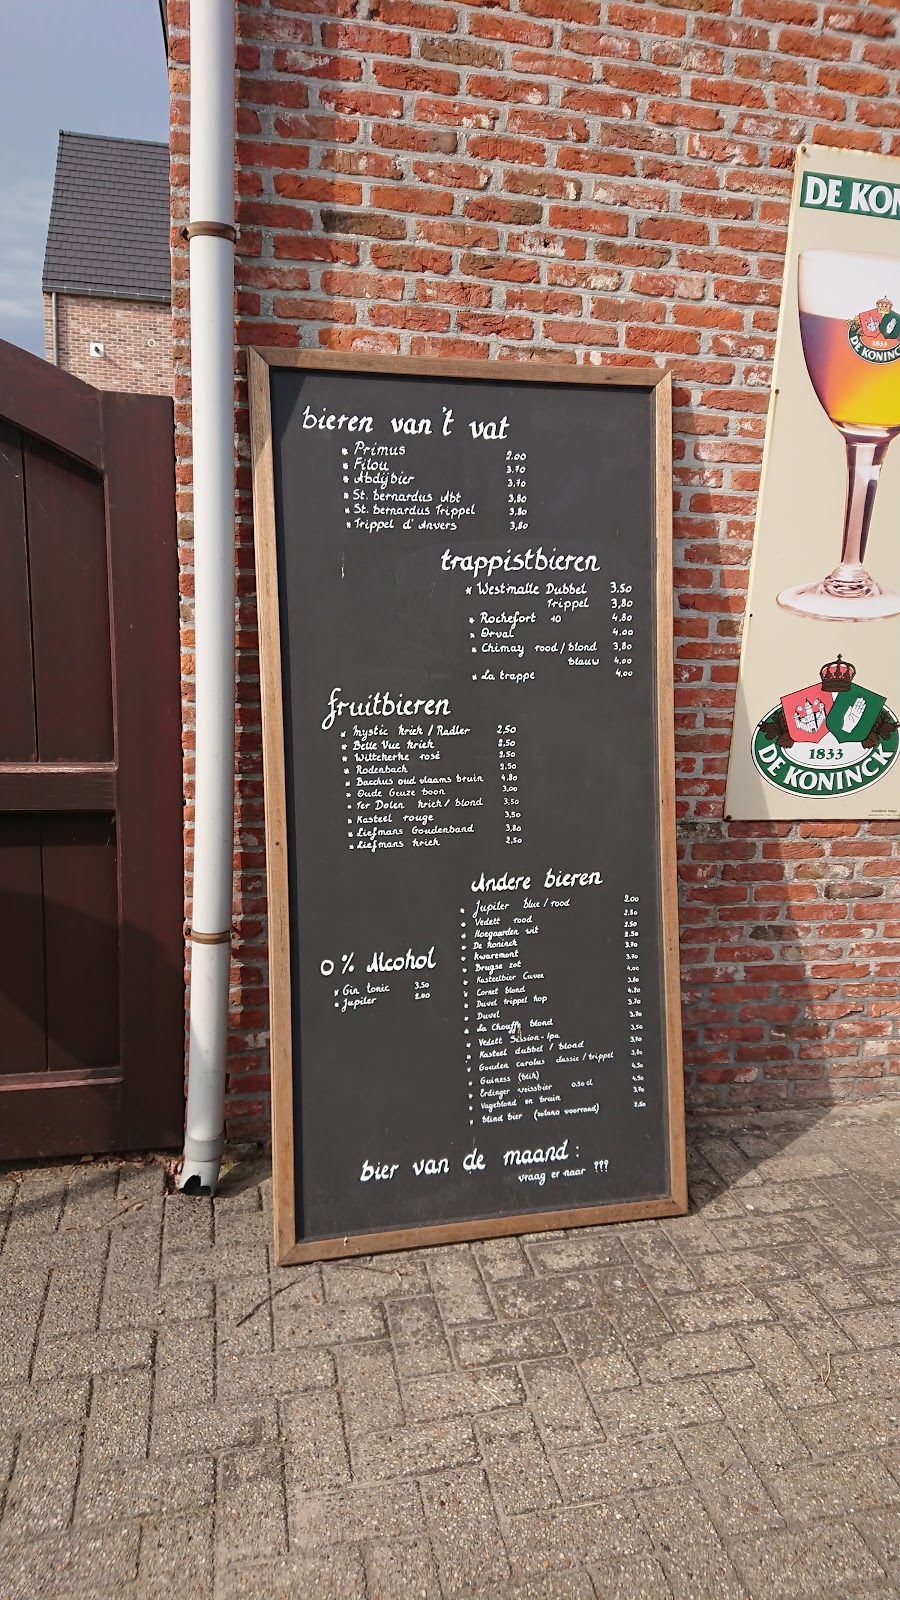 bieren van 't vat
* Primus 2.00
* Filou 3.70
* Abdijbier 3,70
* St. bernardus Abt 3,80
* St. bernardus Trippel 3,80
* Trippel d' Anvers 3,80
trappistbieren
* Westmalle Dubbel 3,50
Trippel 3,80
* Rochefort 10 4,80
* Orval 4,00
* Chimay rood / blond 3,80
blauw 4,00
* La trappe 4,00
fruitbieren
* Mystic kriek / Radler 2,50
* Belle Vue kriek 2,50
* Wittekerke rosé 2.50
* Rodenbach 2,50
* Bacchus oud vlaams bruin 4.80
* Oude Geuze boon 3,00
* Ter Dolen kriek / blond 3,50
* Kasteel rouge 3,50
* Liefmans Goudenband 3,80
* Liefmans kriek 2,50
Andere bieren
* Jupiler blue / rood 2.00
* Vedett rood 2.80
* Hoegaarden wit 2.50
* De koninck 2.50
* Kwaremont 3.70
* Brugse zot 3.70
* Kasteelbier Cuvee 4,00
* Cornet blond 3.80
* Duvel trippel hop 4.90
* Duvel 3.70
* La Chouffe blond 3.70
* Vedett Session-Ipa
* Kasteel dubbel / blond
* Gouden carolus classic / trippel
* Guiness (blik)
* Erdinger weissbier 0.50 cl
* Vageblond en bruin
* blind bier (zolang voorraad) 2.50
0 % Alcohol
* Gin tonic 3.50
* Jupiler
bier van de maand :
vraag er naar ???
DE KON
1833
DE KONINC
1833
DE KONINCK